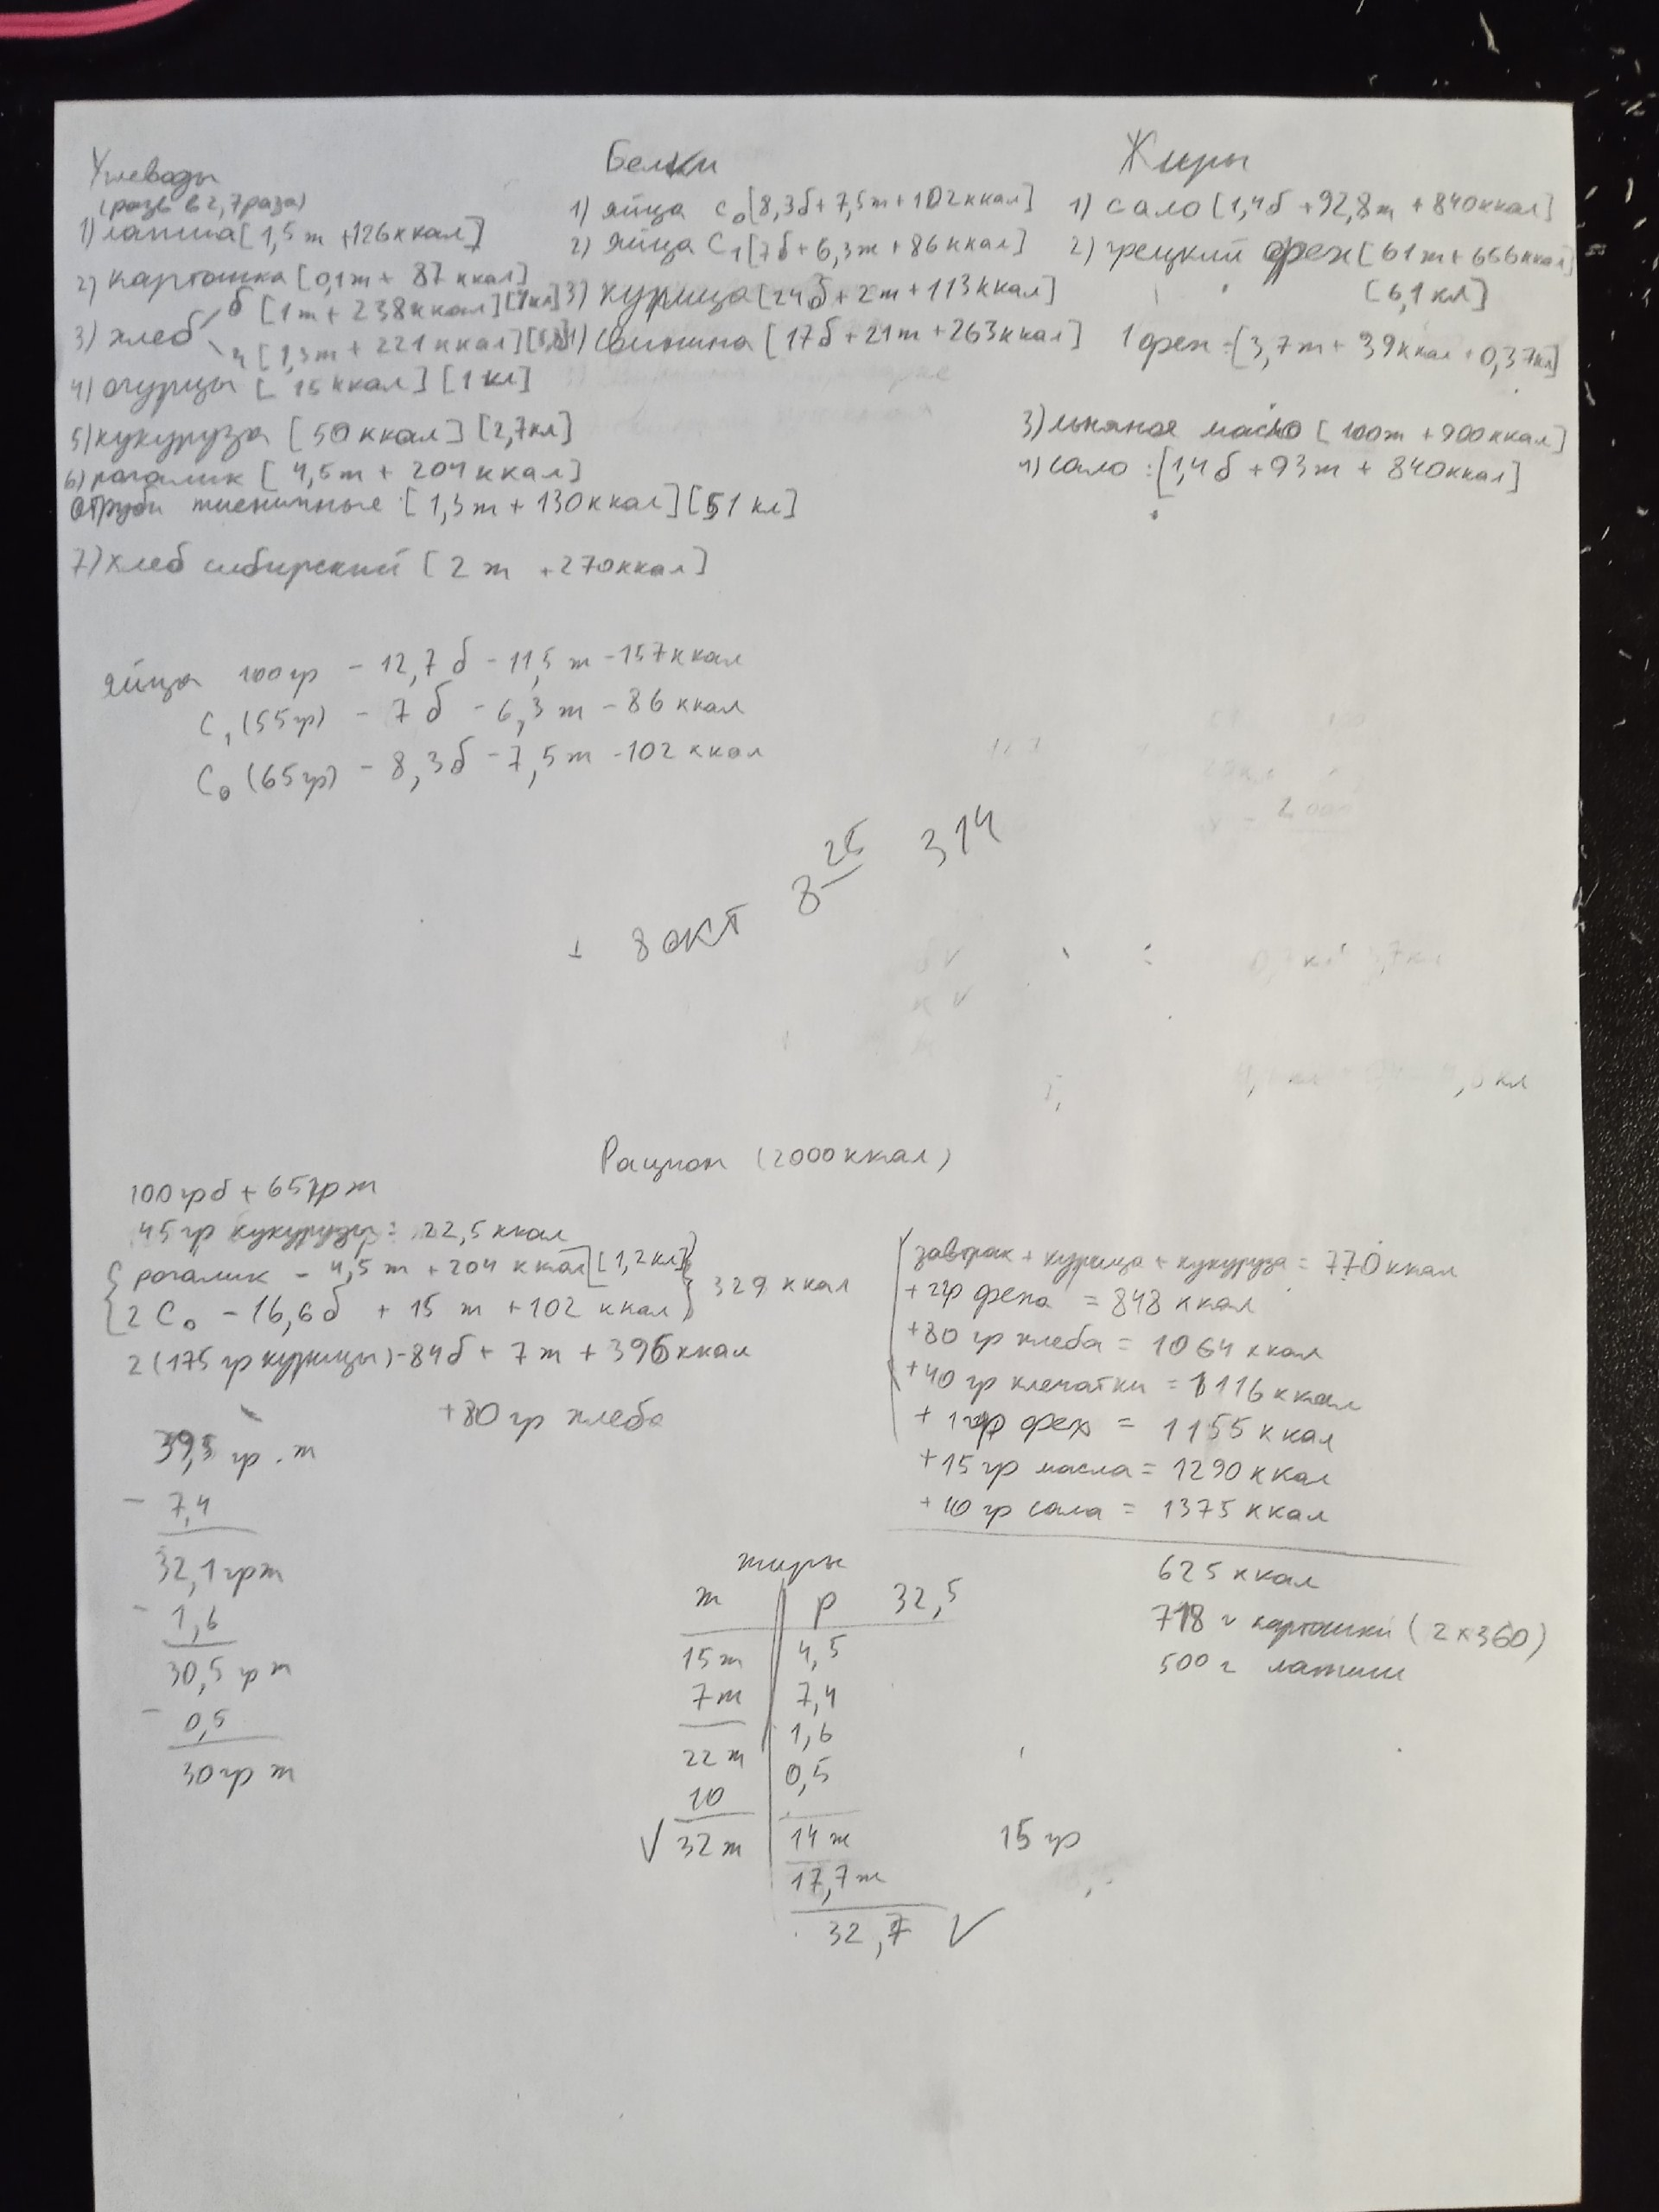 Углеводы
(разв в 2,7 раза)
1) лапша [1,5ж + 126 ккал]
2) картошка [0,1ж + 87 ккал]
3) хлеб б [1ж + 238 ккал]
ч [1,3ж + 221 ккал]
4) огурцы [15 ккал] [1 кл]
5) кукуруза [50 ккал] [2,7кл]
6) рогалик [4,5ж + 204 ккал]
отруби пшеничные [1,3ж + 130 ккал] [51 кл]
7) хлеб сибирский [2ж + 270ккал]
Белки
1) яйца С0 [8,3б + 7,5ж + 102 ккал]
2) яйца С1 [7б + 6,3ж + 86 ккал]
3) курица [24б + 2ж + 113 ккал]
4) свинина [17б + 21ж + 263 ккал]
Жиры
1) сало [1,4б + 92,8ж + 840ккал]
2) грецкий орех [61ж + 656 ккал]
[6,1 кл]
1 орех - [3,7ж + 39ккал + 0,37кл]
3) льняное масло [100ж + 900ккал]
4) сало : [1,4б + 93ж + 840ккал]
яйца 100гр - 12,7б - 11,5ж - 157ккал
С1 (55гр) - 7б - 6,3ж - 86 ккал
С0 (65гр) - 8,3б - 7,5ж - 102 ккал
8 окт 8 25 314
Рацион (2000 ккал)
100грб + 65грж
45 гр кукурузы = 22,5 ккал
рогалик - 4,5ж + 204 ккал [1,2 кл]
2 С0 - 16,6б + 15ж + 102 ккал
329 ккал
2 (175 гр курицы) - 84б + 7ж + 396 ккал
+80 гр хлеба
39,5 гр.ж
- 7,4
32,1грж
- 1,6
30,5 гр ж
- 0,5
30гр ж
завтрак + курица + кукуруза = 770 ккал
+ 2 ореха = 848 ккал
+80 гр хлеба = 1064 ккал
+40 гр клечатки = 1116 ккал
+ 1 орех = 1155 ккал
+15 гр масла = 1290 ккал
+10 гр сала = 1375 ккал
625 ккал
718 г картошки (2 х 360)
500 г лапши
жиры
ж р 32,5
15ж 4,5
7ж 7,4
22ж 1,6
10 0,5
√ 32ж 14ж
17,7ж
32,7 √
15 гр